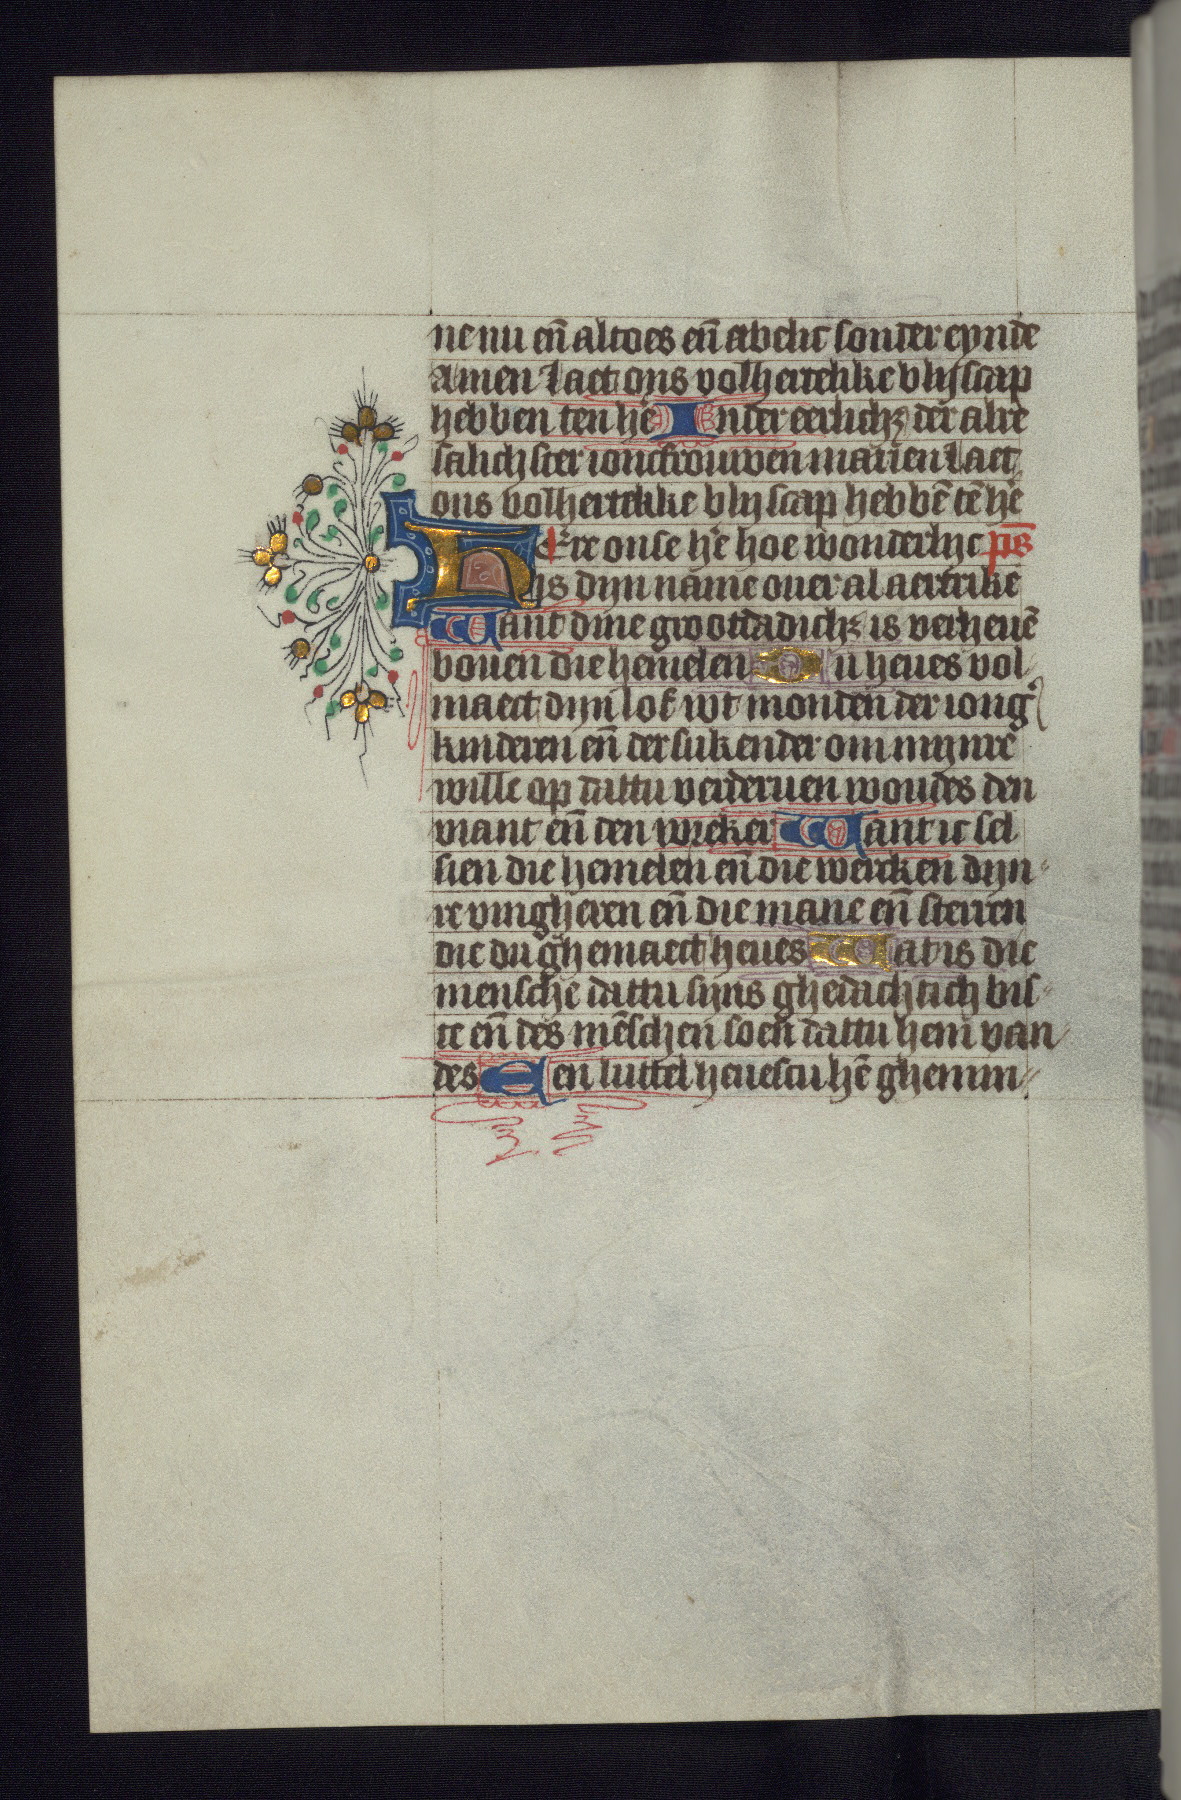 ne nu en̄ altoes en̄ ewelic sonder eynde
amen Laet ons volhertelike blijscap
hebben ten hē In der eerlich⁊ der alre
salichster ioncfrouwen marien Laet
ons volhertelike blijscap hebbē tē hē
HEre onse hē hoe wonderlijc ps̄
is dijn name ouer al aertrike
Want dine grootdadich⁊ is verheuē
bouen die hemelen Du heues vol
maect dijn lof wt monden der iong̛
kinderen en̄ der sukender om mynre
wille op dattu verderuen woudes den
viant en̄ den wreker Want ic sel
sien die hemelen en̄ die wercken dijn
re vingheren en̄ die mane en̄ sterren
die du ghemaect heues Wat is die
mensche dattu sijns ghedachtich bis
te en̄ des mēschen soen dattu hem van
des Een luttel heuestu hē ghemin